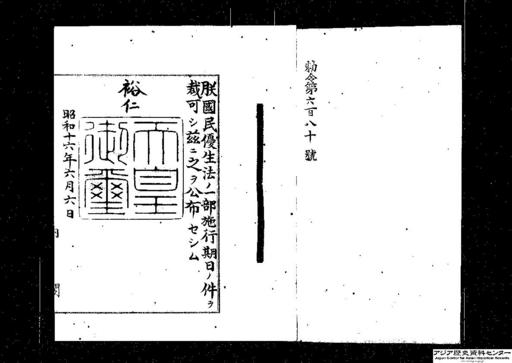 勅令第六百八十號
朕國民優生法ノ一部施行期日ノ件ヲ
裁可シ茲ニ之ヲ公布セシム
裕仁
天皇
御璽
昭和十六年六月六日
アジア歴史資料センター
Japan Center for Asian Historical Records